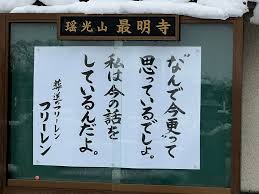 瑶光山 最明寺
なんで今更って
思っているでしょ。
私は今の話を
しているんだよ。
葬送のフリーレン
フリーレン